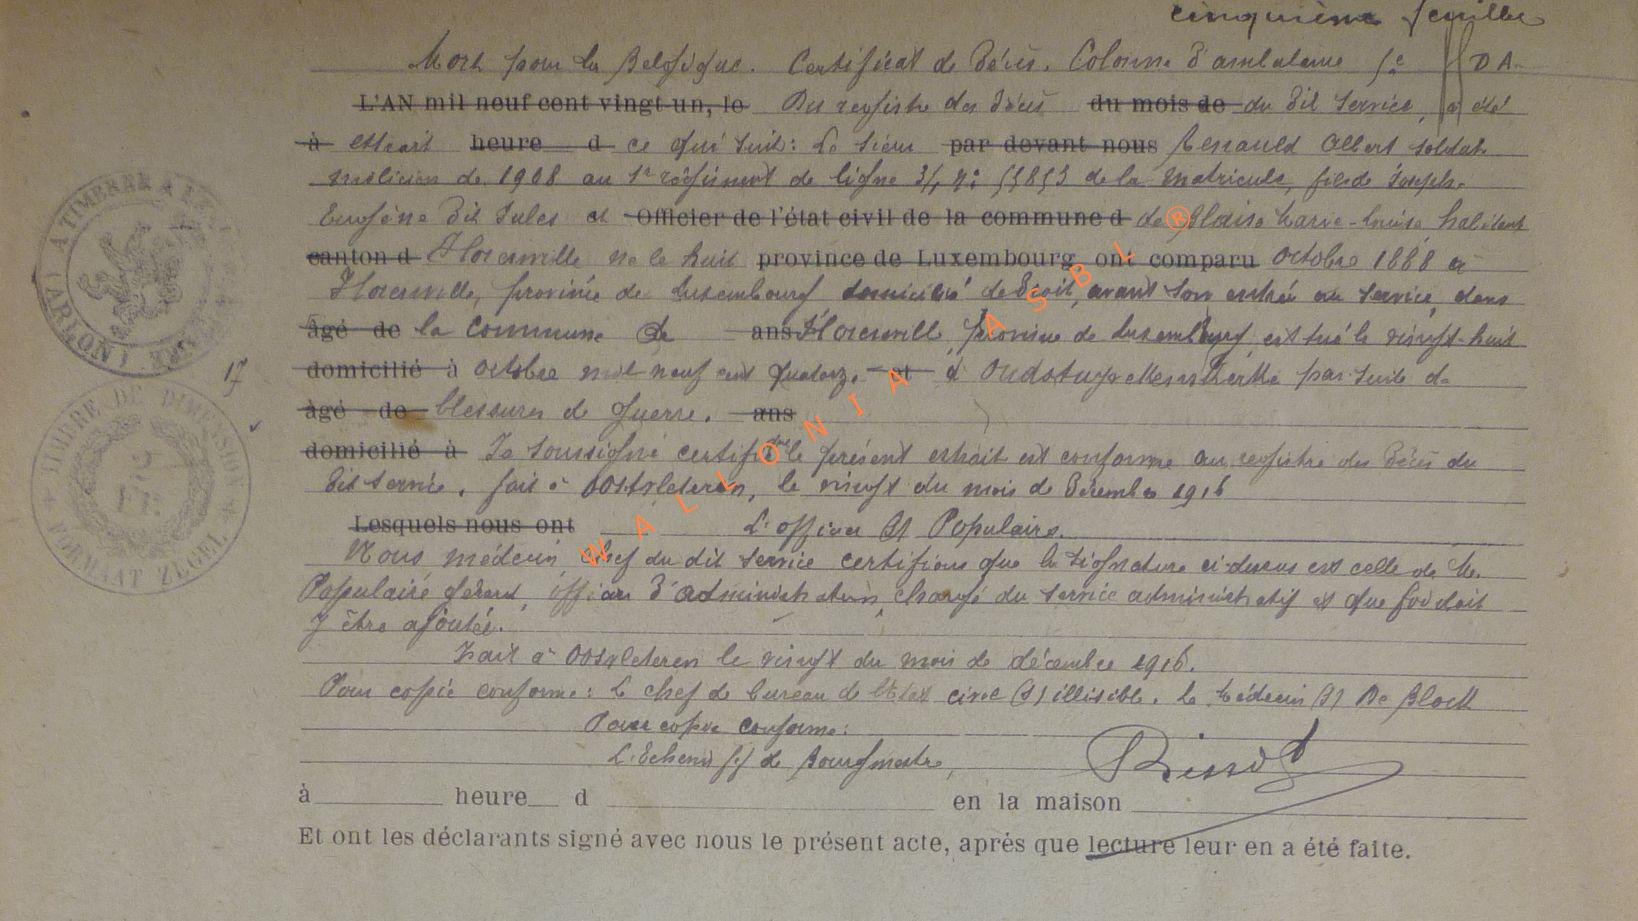 cinquième feuille
Mort pour la Belgique. Certificat de décès. Colonne d'ambulance 5e D A.
L'AN mil neuf cent vingt-un, le Du registre des décès du mois de du dit service, a été
à extrait heure d ce qui suit: Le sieur par devant nous Renauld Albert soldat
milicien de 1908 au 1r régiment de ligne 3/4 n: 55853 de la matricule, fils de Joseph-
Eugène dit Jules et Officier de l'état civil de la commune d de Blaise Marie-Louise habitant
canton d Florenville né le huit province de Luxembourg, ont comparu octobre 1888 à
Florenville, province de Luxembourg domicilié de droit, avant son entrée au service, dans
âgé de la commune de ans Florenville, province de Luxembourg, est tué le vingt-huit
domicilié à octobre mil neuf cent quatorze et à par suite de
âgé de blessures de guerre. ans
domicilié à Je soussigné certifie que le présent extrait est conforme au registre des décès du
dit service. fait à Oostvleteren, le vingt du mois de décembre 1916
Lesquels nous ont L'officier (s) Populaire.
Nous médecin chef du dit service certifions que la signature ci-dessus est celle de M.
Populaire Gérard, officier d'administration chargé du service administratif et que foi doit
y être ajoutée.
Fait à Oostvleteren le vingt du mois de décembre 1916.
Pour copie conforme: Le chef de bureau de l'Etat civil (s) illisible. Le Médecin (s) De Block
Pour copie conforme:
L'Echevin ff de Bourgmestre,
à heure d en la maison
Et ont les déclarants signé avec nous le présent acte, après que lecture leur en a été faite.
17
TIMBRE DE DIMENSION
FORMAAT ZEGEL
WALLONIA ASBL ®